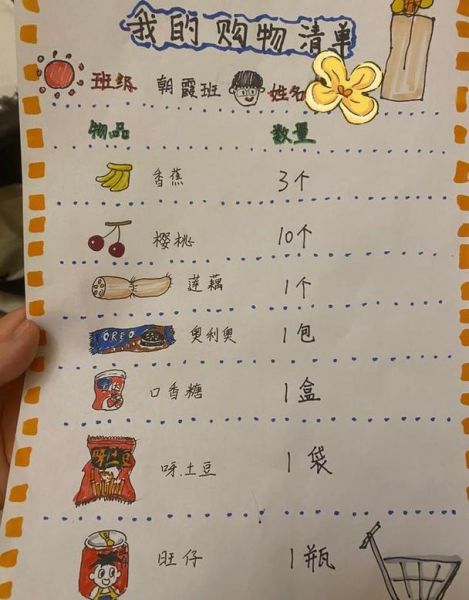 我的购物清单
班级 朝霞班 姓名
物品 数量
香蕉 3个
樱桃 10个
莲藕 1个
OREO 奥利奥 1包
口香糖 1盒
呀土豆 呀土豆 1袋
旺仔 1瓶